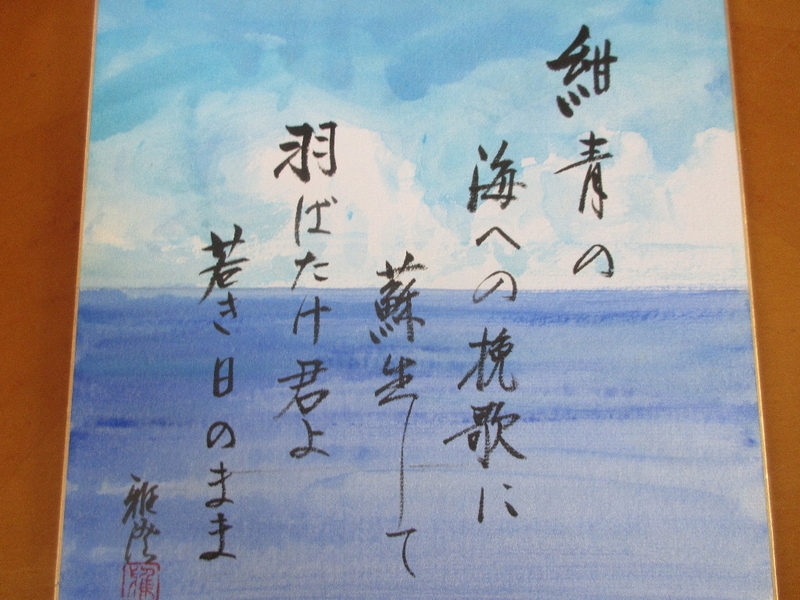 紺青の
海への挽歌に
蘇生して
羽ばたけ君よ
若き日のまま
雅